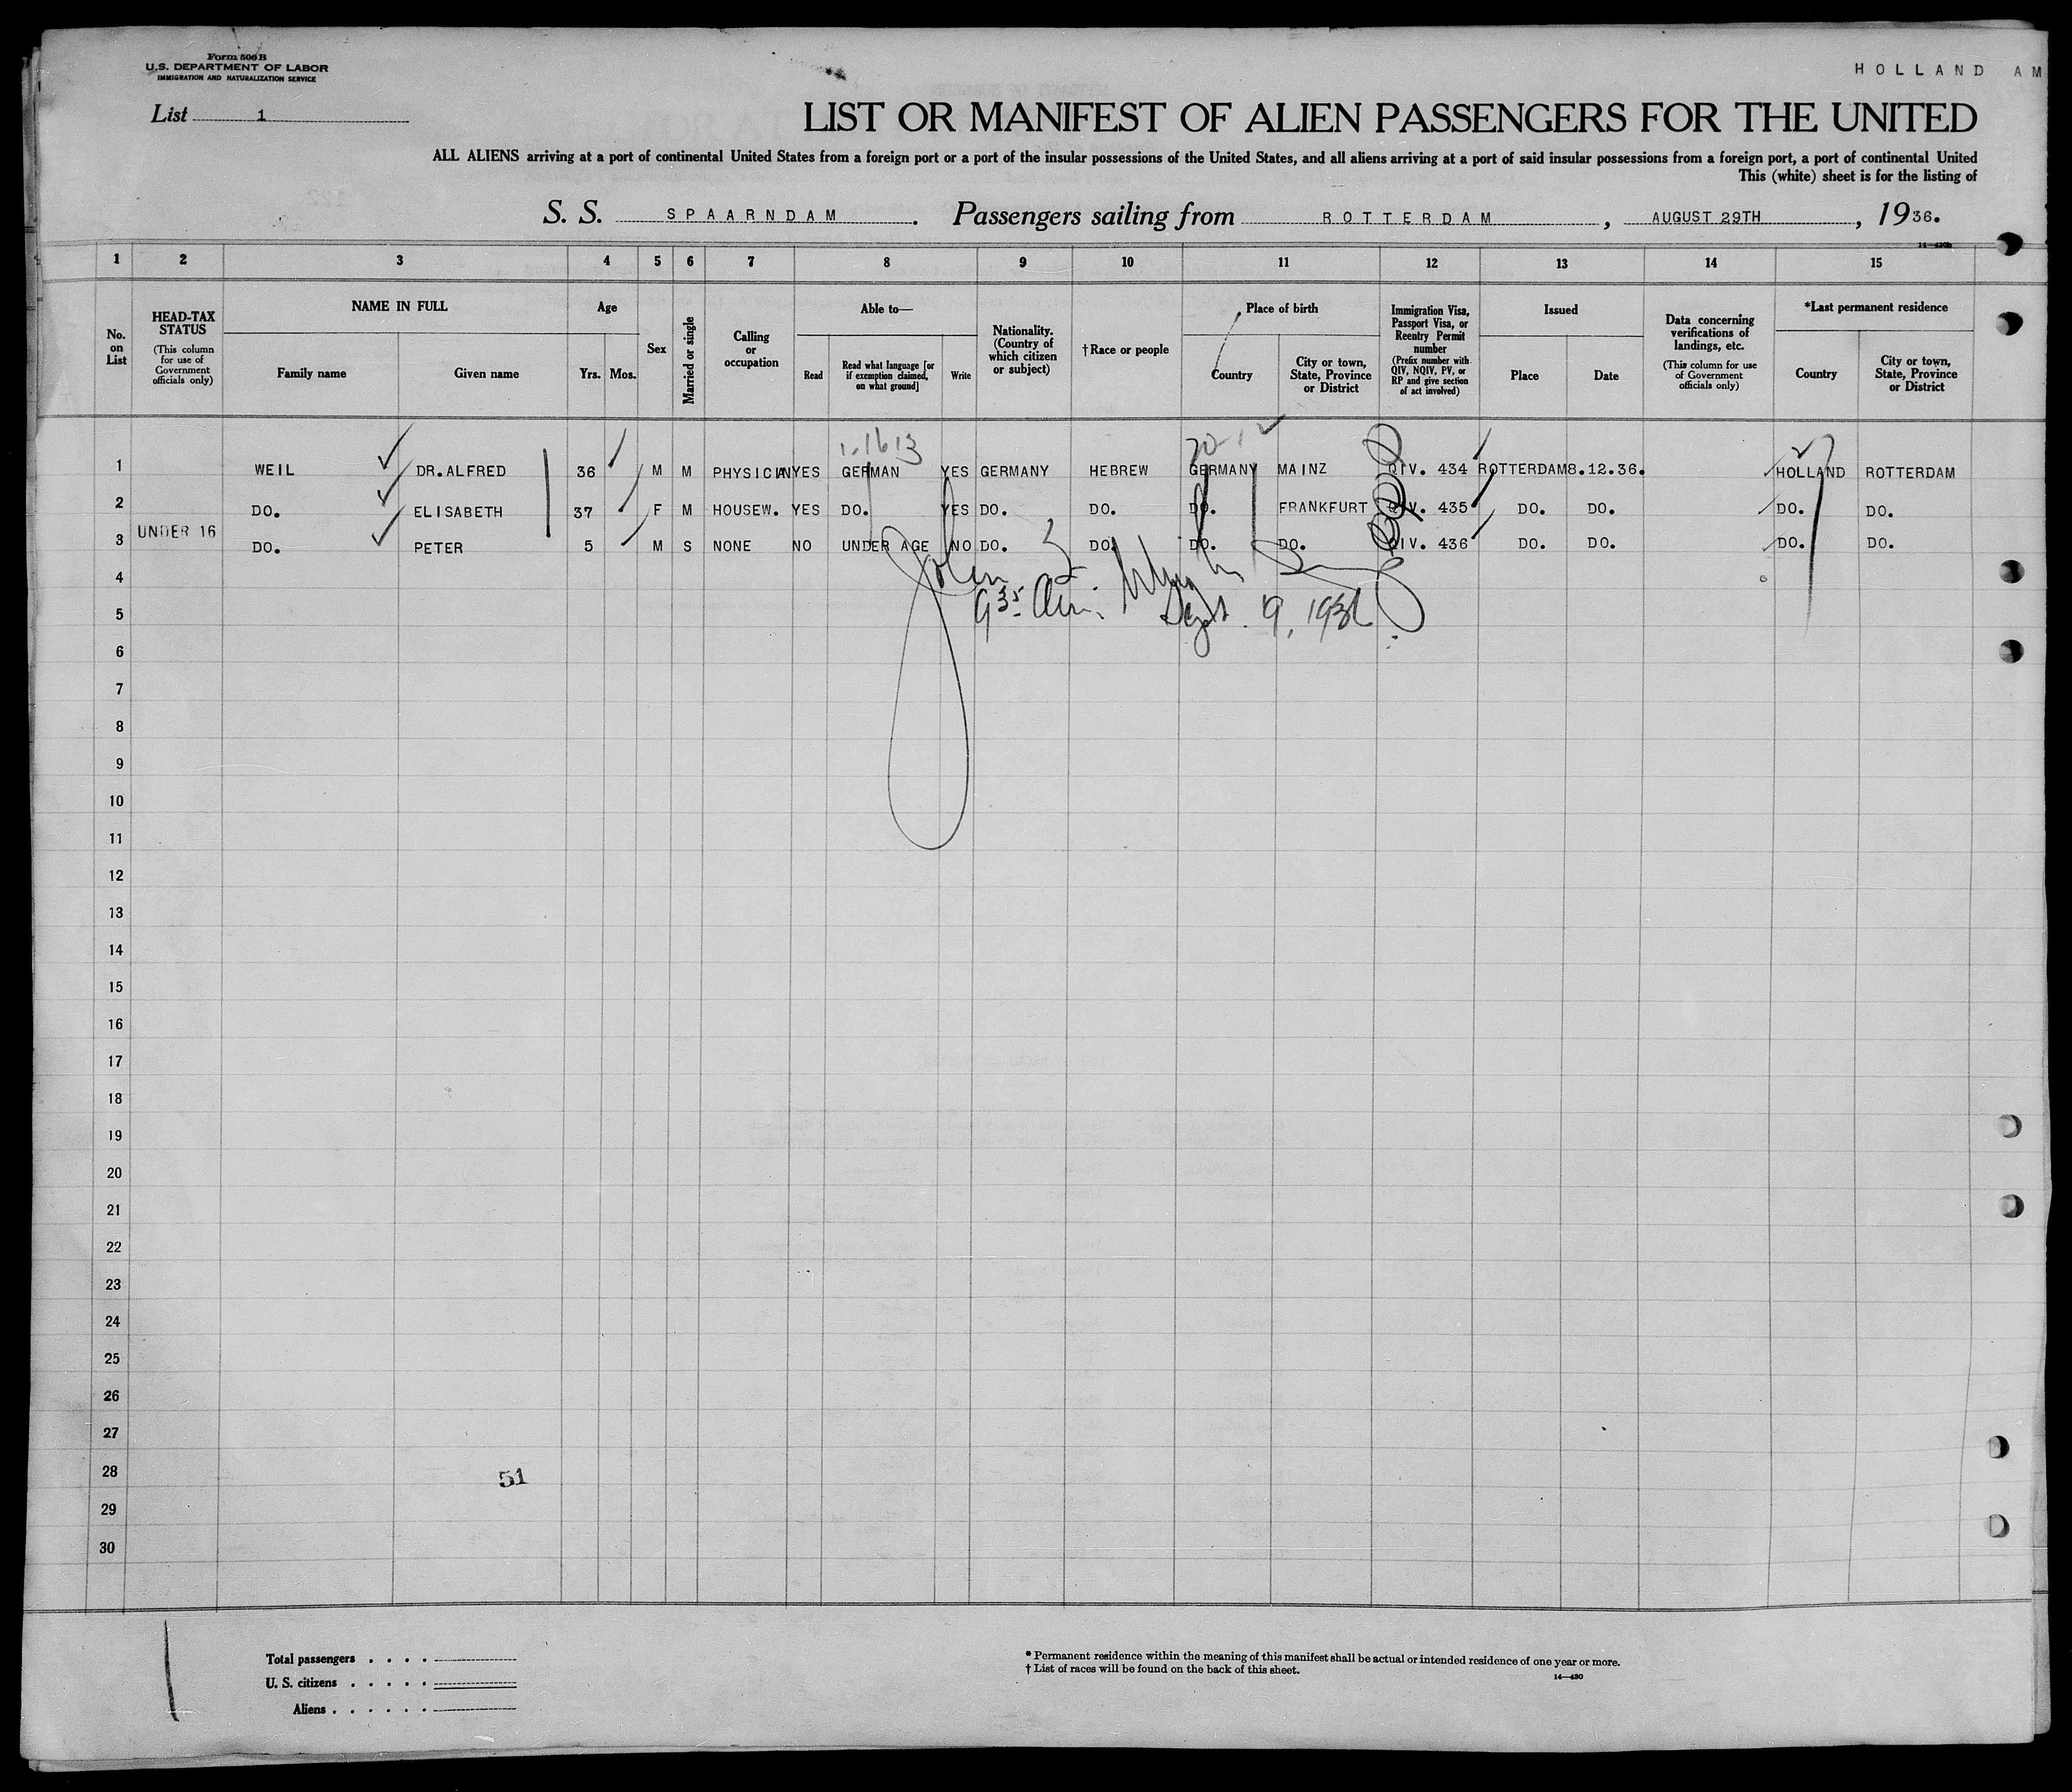 Form 500 B
U.S. DEPARTMENT OF LABOR
IMMIGRATION AND NATURALIZATION SERVICE
HOLLAND AM
List 1
LIST OR MANIFEST OF ALIEN PASSENGERS FOR THE UNITED
ALL ALIENS arriving at a port of continental United States from a foreign port or a port of the insular possessions of the United States, and all aliens arriving at a port of said insular possessions from a foreign port, a port of continental United
This (white) sheet is for the listing of
S. S. SPAARNDAM. Passengers sailing from ROTTERDAM, AUGUST 29TH, 1936.
1 2 3 4 5 6 7 8 9 10 11 12 13 14 15
No. on List
HEAD-TAX STATUS (This column for use of Government officials only)
NAME IN FULL
Family name Given name
Age
Yrs. Mos.
Sex
Married or single
Calling or occupation
Able to—
Read
Read what language [or if exemption claimed, on what ground]
Write
Nationality. (Country of which citizen or subject)
†Race or people
Place of birth
Country
City or town, State, Province or District
Immigration Visa, Passport Visa, or Reentry Permit number (Prefix number with QIV, NQIV, PV, or RP and give section of act involved)
Issued
Place Date
Data concerning verifications of landings, etc. (This column for use of Government officials only)
*Last permanent residence
Country
City or town, State, Province or District
1 WEIL DR.ALFRED 36 M M PHYSICIAN YES GERMAN YES GERMANY HEBREW GERMANY MAINZ QIV. 434 ROTTERDAM 8.12.36. HOLLAND ROTTERDAM
2 DO. ELISABETH 37 F M HOUSEW. YES DO. YES DO. DO. DO. FRANKFURT QIV. 435 DO. DO. DO. DO.
3 UNDER 16 DO. PETER 5 M S NONE NO UNDER AGE NO DO. DO. DO. DO. QIV. 436 DO. DO. DO. DO.
4
5
Sept. 9, 1936
6
7
8
9
10
11
12
13
14
15
16
17
18
19
20
21
22
23
24
25
26
27
28
51
29
30
Total passengers . . . .
U. S. citizens . . . . .
Aliens . . . . . .
* Permanent residence within the meaning of this manifest shall be actual or intended residence of one year or more.
† List of races will be found on the back of this sheet.
14—430